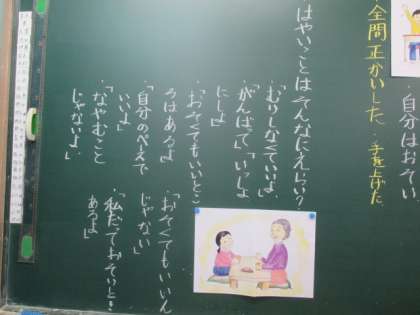 ・自分はおそい
・全問正かいした ・手を上げた
はやいことはそんなにえらい?
・「むりしなくていいよ」
・「がんばって」「いっしょ
にしよ
・「おそくてもいいとこ
ろはあるよ
・「自分のペえで
いいよ」
・「なやむこと
じゃないよ」
・「おそくてもいいん
じゃない」
・「私だっておそいとき
あるよ」